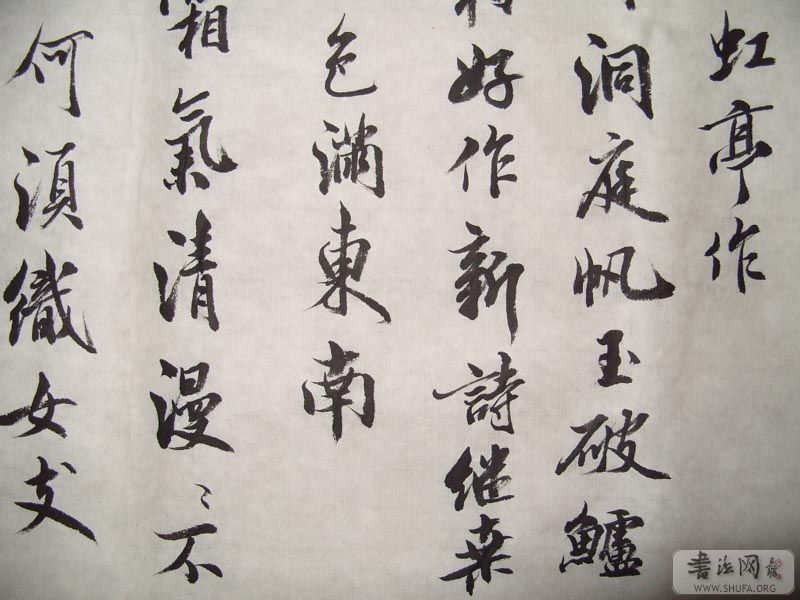 虹亭作
洞庭帆玉破鱸
好作新詩継桒
色滿東南
霜氣清漫〻不
何須織女支
書法网
WWW.SHUFA.ORG